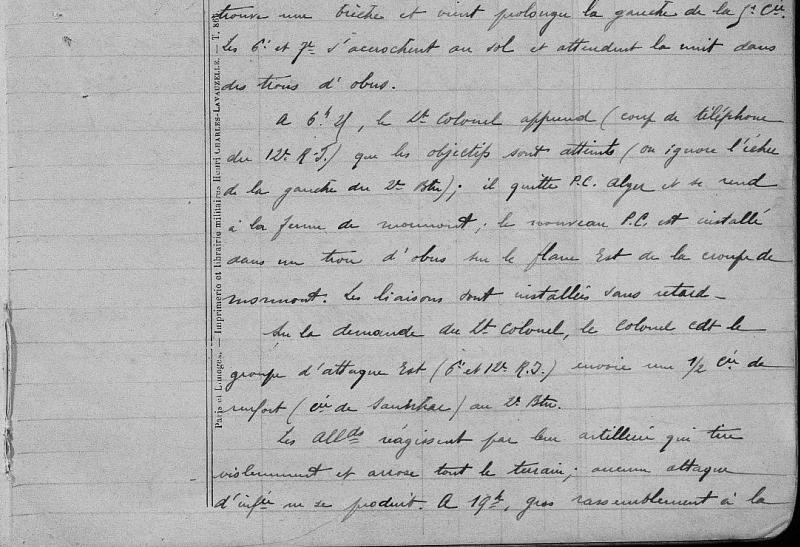 trouve une brèche et vient prolonger la gauche de la 5e Cie.
Les 6e et 7e s'accrochent au sol et attendent la nuit dans
des trous d'obus.
A 6h 25, le Lt Colonel apprend (coup de téléphone
du 12e R.I.) que les objectifs sont atteints (on ignore l'échec
de la gauche du 2e Btn); il quitte P.C. Alger et se rend
à la ferme de mormont; le nouveau P.C. est installé
dans un trou d'obus sur le flanc Est de la croupe de
mormont. Les liaisons sont installées sans retard -
Sur la demande du Lt Colonel, le Colonel cdt le
groupe d'attaque Est (6e et 12e R.I.) envoie une 1/2 Cie de
renfort (Cie de) au 2e Btn.
Les Allds réagissent par leur artillerie qui tire
violemment et arrose tout le terrain; aucune attaque
d'infie ne se produit. A 19h, gros rassemblement à la
Paris et Limoges. — Imprimerie et librairie militaires Henri CHARLES-LAVAUZELLE. — T. 86